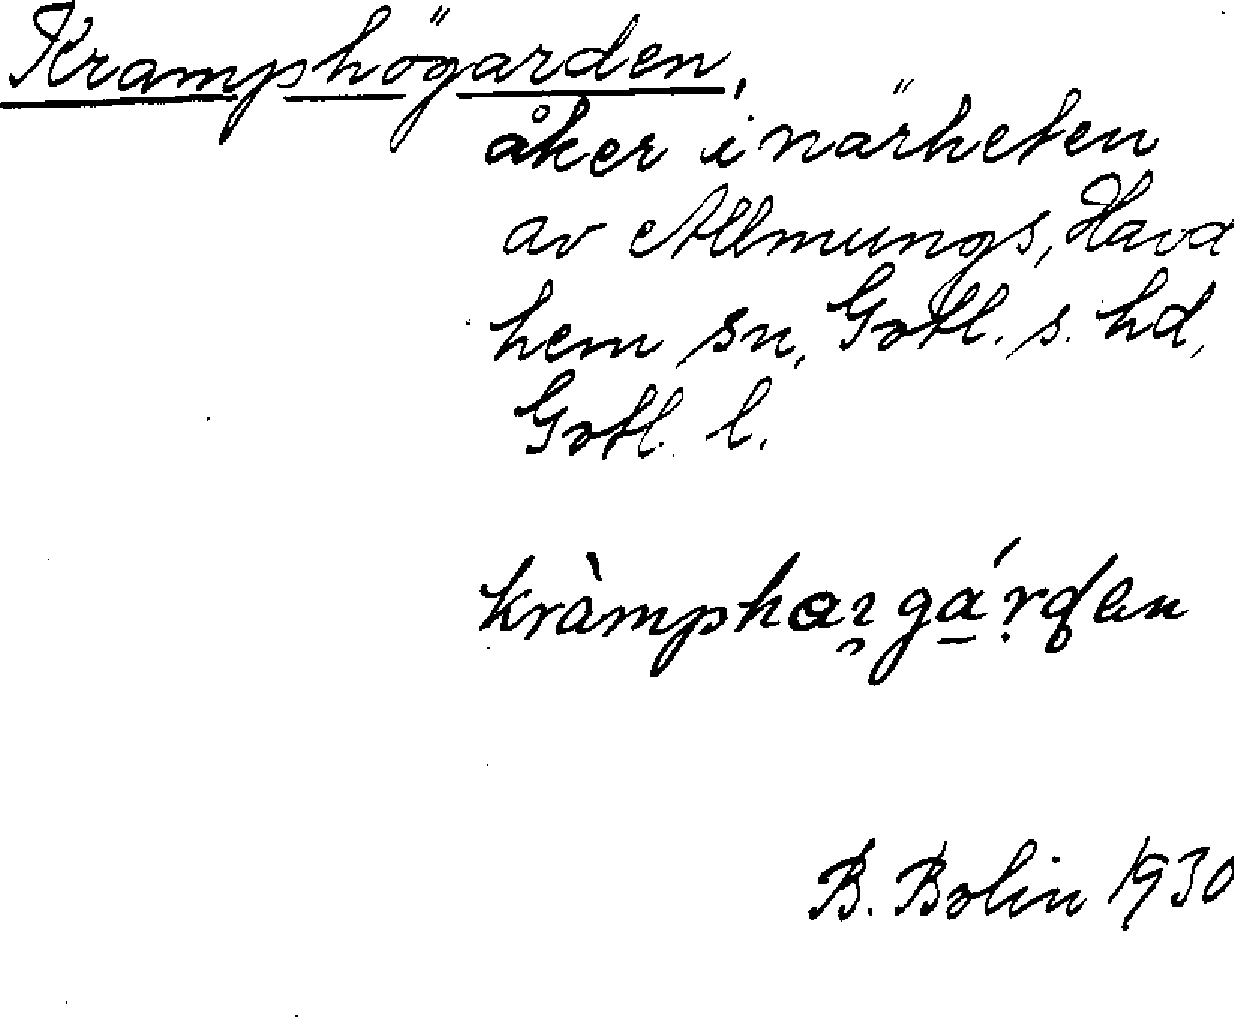 Kramphögarden,
åker i närheten
av Allmungs, Hava
hem sn, Gotl. s. hd,
Gotl. l.
B. Bolin 1930